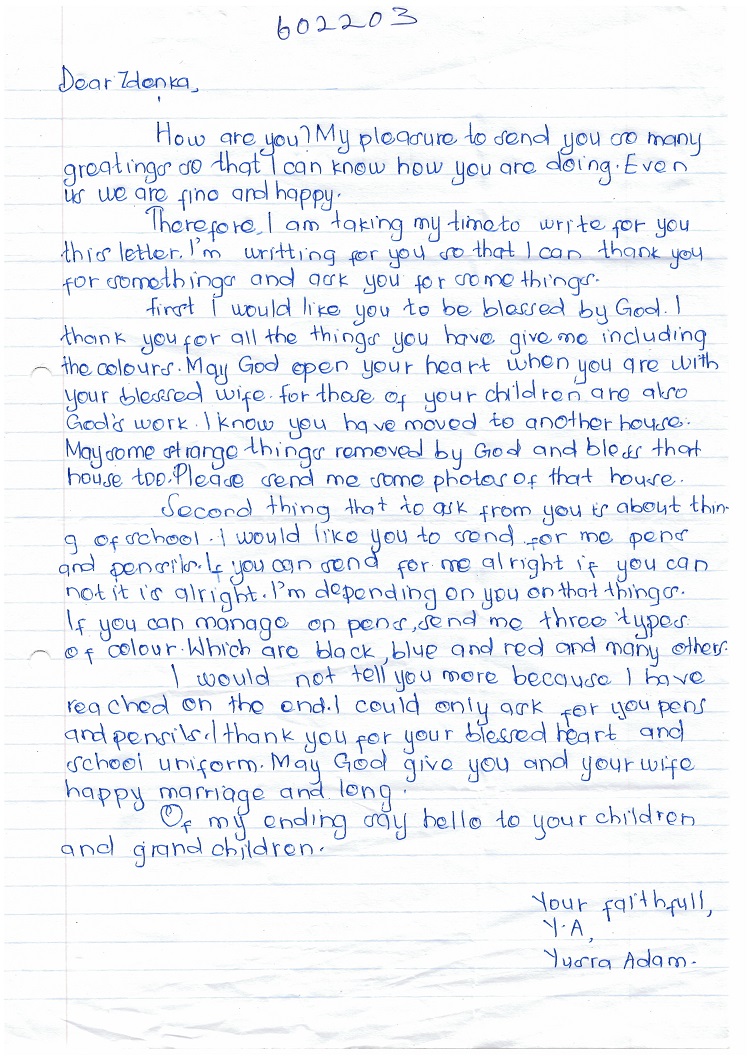 602203
Dear Zdenka,
How are you? My pleasure to send you so many
greatings so that I can know how you are doing. Even
us we are fine and happy.
Therefore, I am taking my time to write for you
this letter. I'm writting for you so that I can thank you
for somethings and ask you for some things.
first I would like you to be blessed by God. I
thank you for all the things you have give me including
the colours. May God open your heart when you are with
your blessed wife. for those of your children are also
God's work. I know you have moved to another house.
May some strange things removed by God and bless that
house too. Please send me some photos of that house.
Second thing that to ask from you is about thin-
g of school. I would like you to send for me pens
and pensils. If you can send for me alright if you can
not it is alright. I'm depending on you on that things.
If you can manage on pens, send me three types
of colour. Which are black, blue and red and many others.
I would not tell you more because I have
reached on the end. I could only ask for you pens
and pensils. I thank you for your blessed heart and
school uniform. May God give you and your wife
happy marriage and long.
Of my ending say hello to your children
and grand children.
Your faithfull,
Y.A,
Yusra Adam.